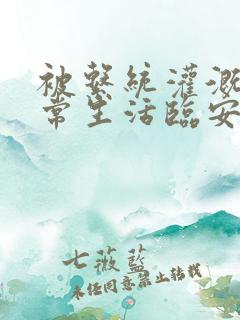 被系統灌溉
常生活臨安
七薇藍
未任同意禁止转载